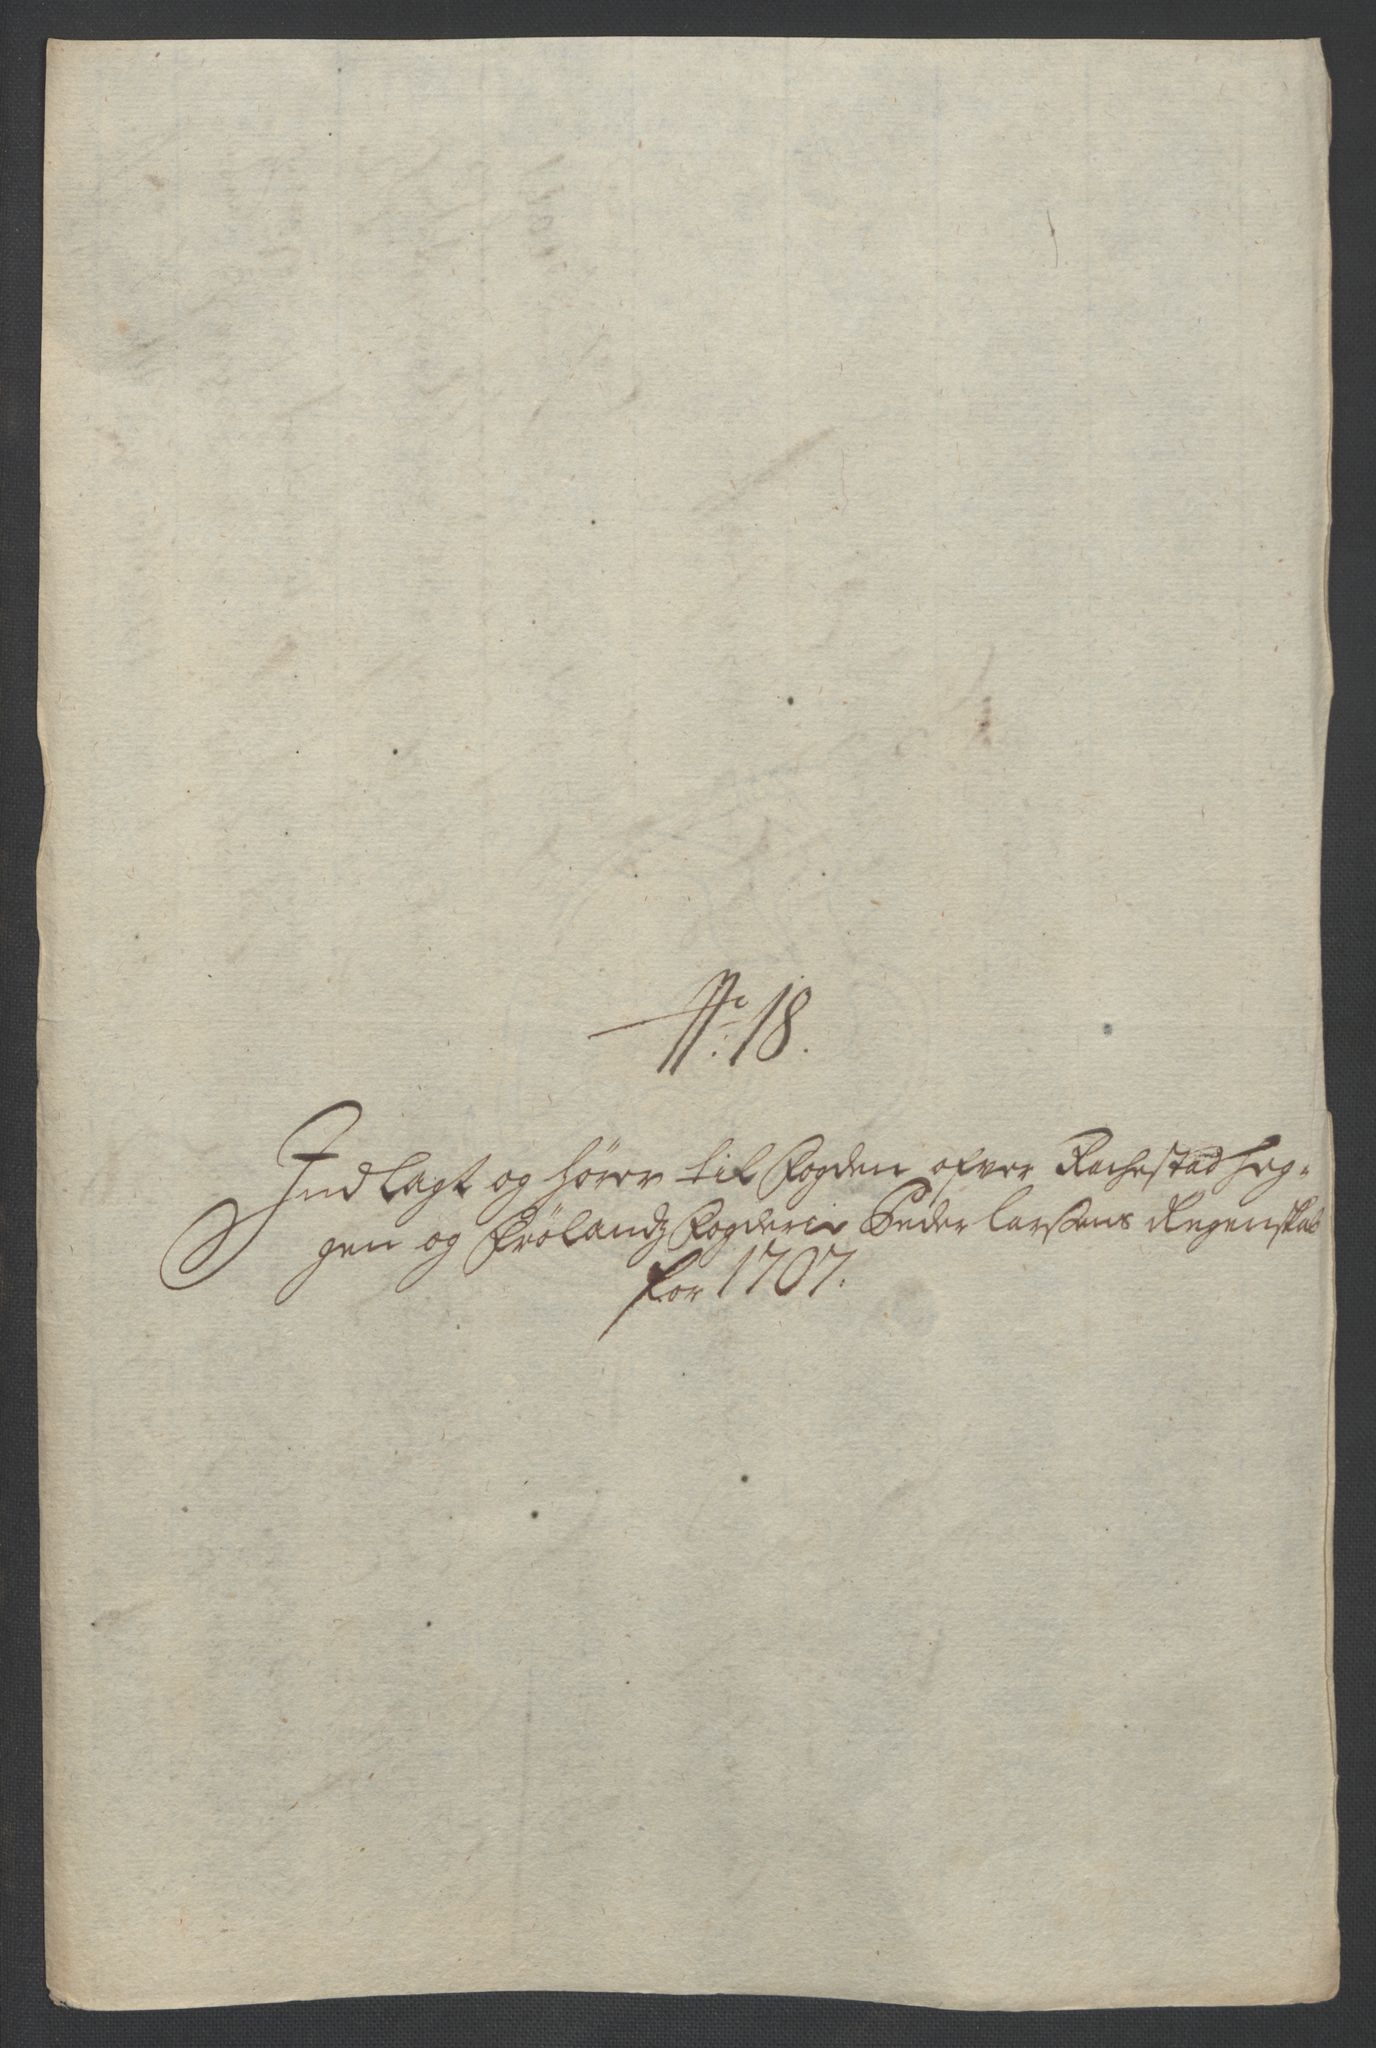 No 18.
Indlagt og hörer til Fogden ofver Rachestad Heg-
gen og Frölandz Fogderie Peder Larsens Regenskab
for 1707.